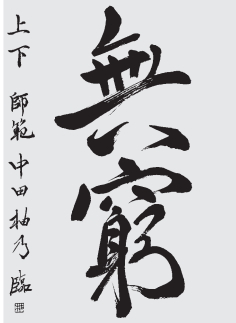 無窮
上下 師範 中田柚乃 臨